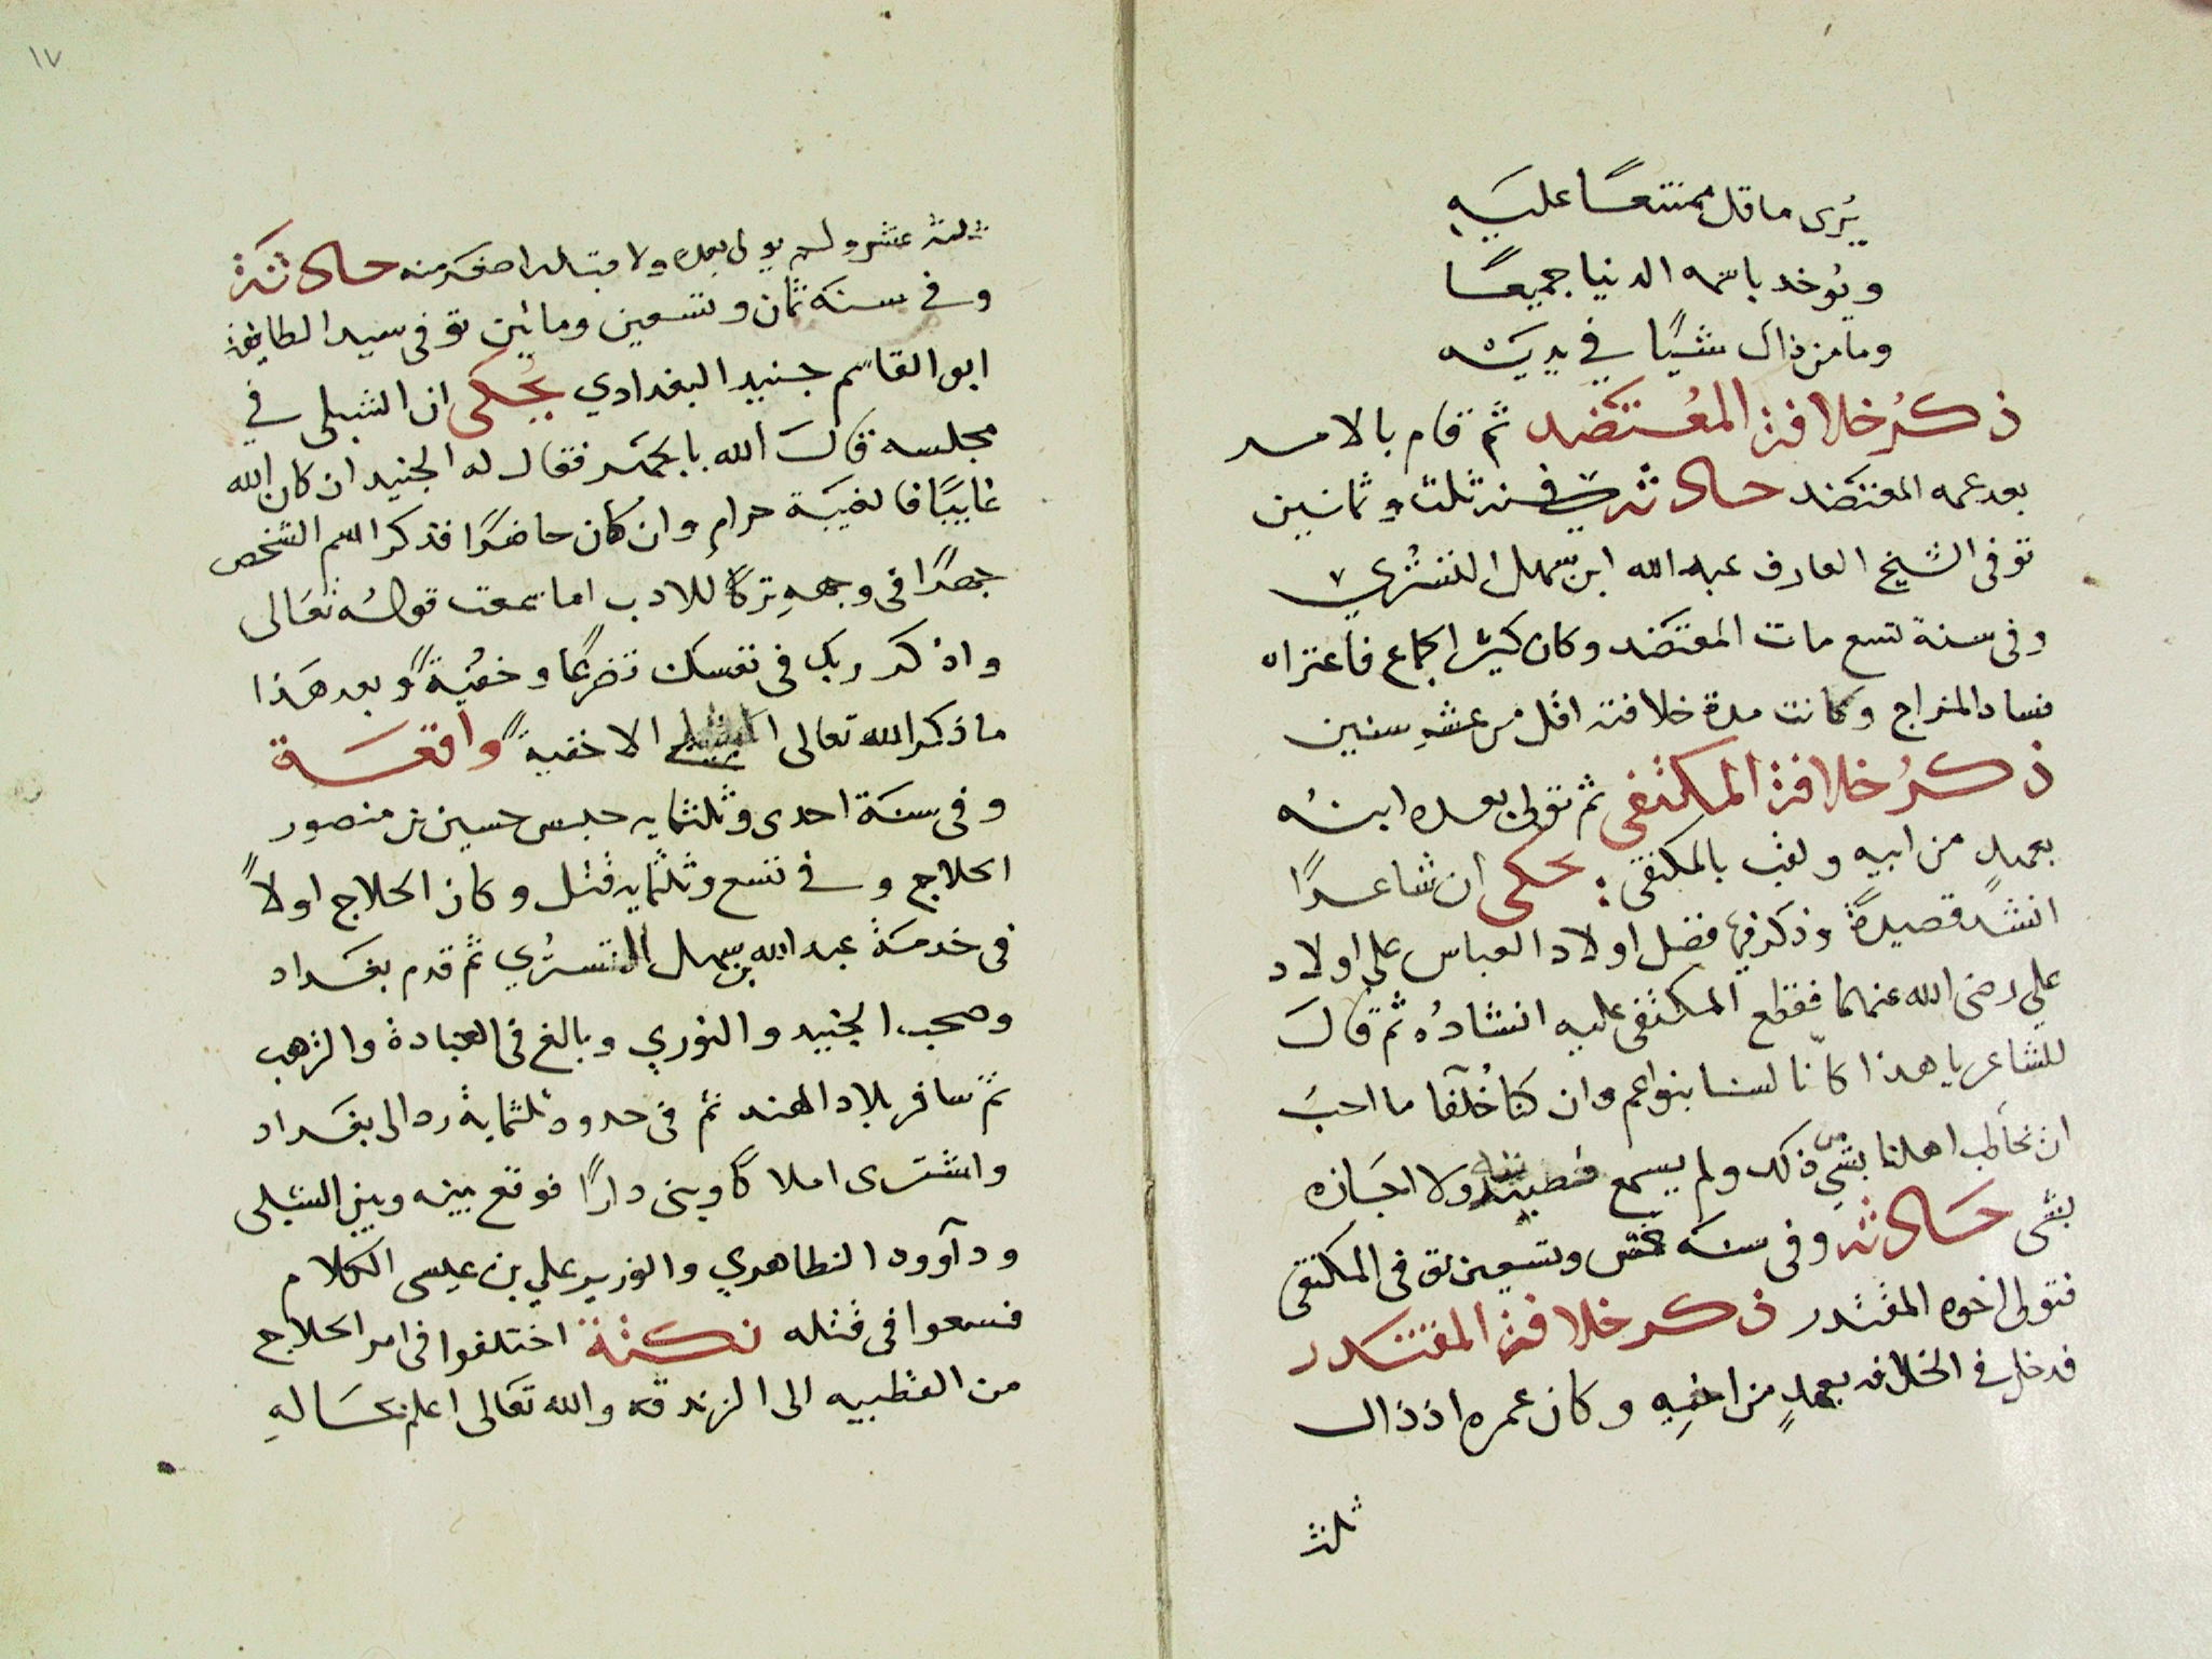 يُرى ما قل ممتنعًا عليه
ويُوخد باسمه الدنيا جميعًا
وما من ذاك شيًا في يديه
ذكرُ خلافة المعُتَضد ثم قام بالامر
بعد عمه المعتضد حادثة في سنة ثلث وثمانين
توفى الشيخ العارف عبد الله ابن سهل التستُري
وفى سنة تسع مات المعتضد وكان كثير الجماع فاعتراه
فساد المزاج وكانت مدة خلافته اقل من عشر سنين
ذكرُ خلافة المكتفى ثم تولى بعده ابنه
بعهدٍ من ابيه ولقب بالمكتفى : يحكى ان شاعرًا
انشد قصيدةً وذكر فيها فضل اولاد العباس على اولاد
علي رضى الله عنهما فقطع المكتفى عليه انشادُه ثم قال
للشاعر يا هذا كانّا لسنا بنواعم وان كنا خُلَفا ما احب
ان نخاطب اهلنا بشي من ذلك ولم يسمع ولا اجازه
بشى حادثه وفى سنة خمس وتسعين توفى المكتفى
فتولى اخوه المقتدر ذكر خلافة المقتدر
فدخل في الخلافه بعهدٍ من اخيهِ وكان عمره اذ ذاك
ثلثة
١٧
ثلثة عشر ولم يولى بعده ولا قبله اصغر منه حادثة
وفي سنة ثمان وتسعين ومائين توفى سيد الطايفة
ابو القاسم جنيد البغدادي يُحكى ان الشبلى في
مجلسه قال الله بالجهر فقال له الجنيد ان كان الله
غايبًا فالغيبة حرام وان كان حاضرًا فذكر اسم الشخص
جهرًا فى وجههِ تركًا للادب اما سمعت قوله تعالى
واذكر ربك فى نفسك تضرعًا وخفيةً وبعد هذا
ما ذكر الله تعالى الا خفيةً واقعة
وفى سنة احدى وثلثمايه حبس حسين بن منصور
الحلاج وفي تسع وثلثمايه قتل وكان الحلاج اولاً
فى خدمة عبد الله بن سهل التستُري ثم قدم بغداد
وصحب الجنيد والنوري وبالغ فى العبادة والزهد
ثم سافر بلاد الهند ثم فى حدود ثلثماية رد الى بغداد
واشترى املاكًا وبنى دارًا فوقع بينه وبين الشبلى
وداوود الظاهري والوزير علي بن عيسى الكلام
فسعوا فى قتله نكتة اختلفوا فى امر الحلاج
من القطبيه الى الزندقه والله تعالى اعلم بحالهِ